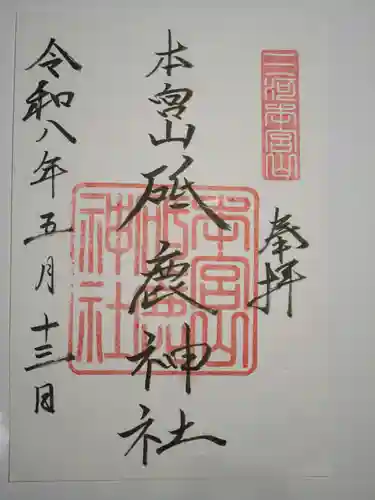 三河本宮山
奉拝
本宮山
砥鹿神社
本宮山
砥鹿
神社
令和八年五月十三日